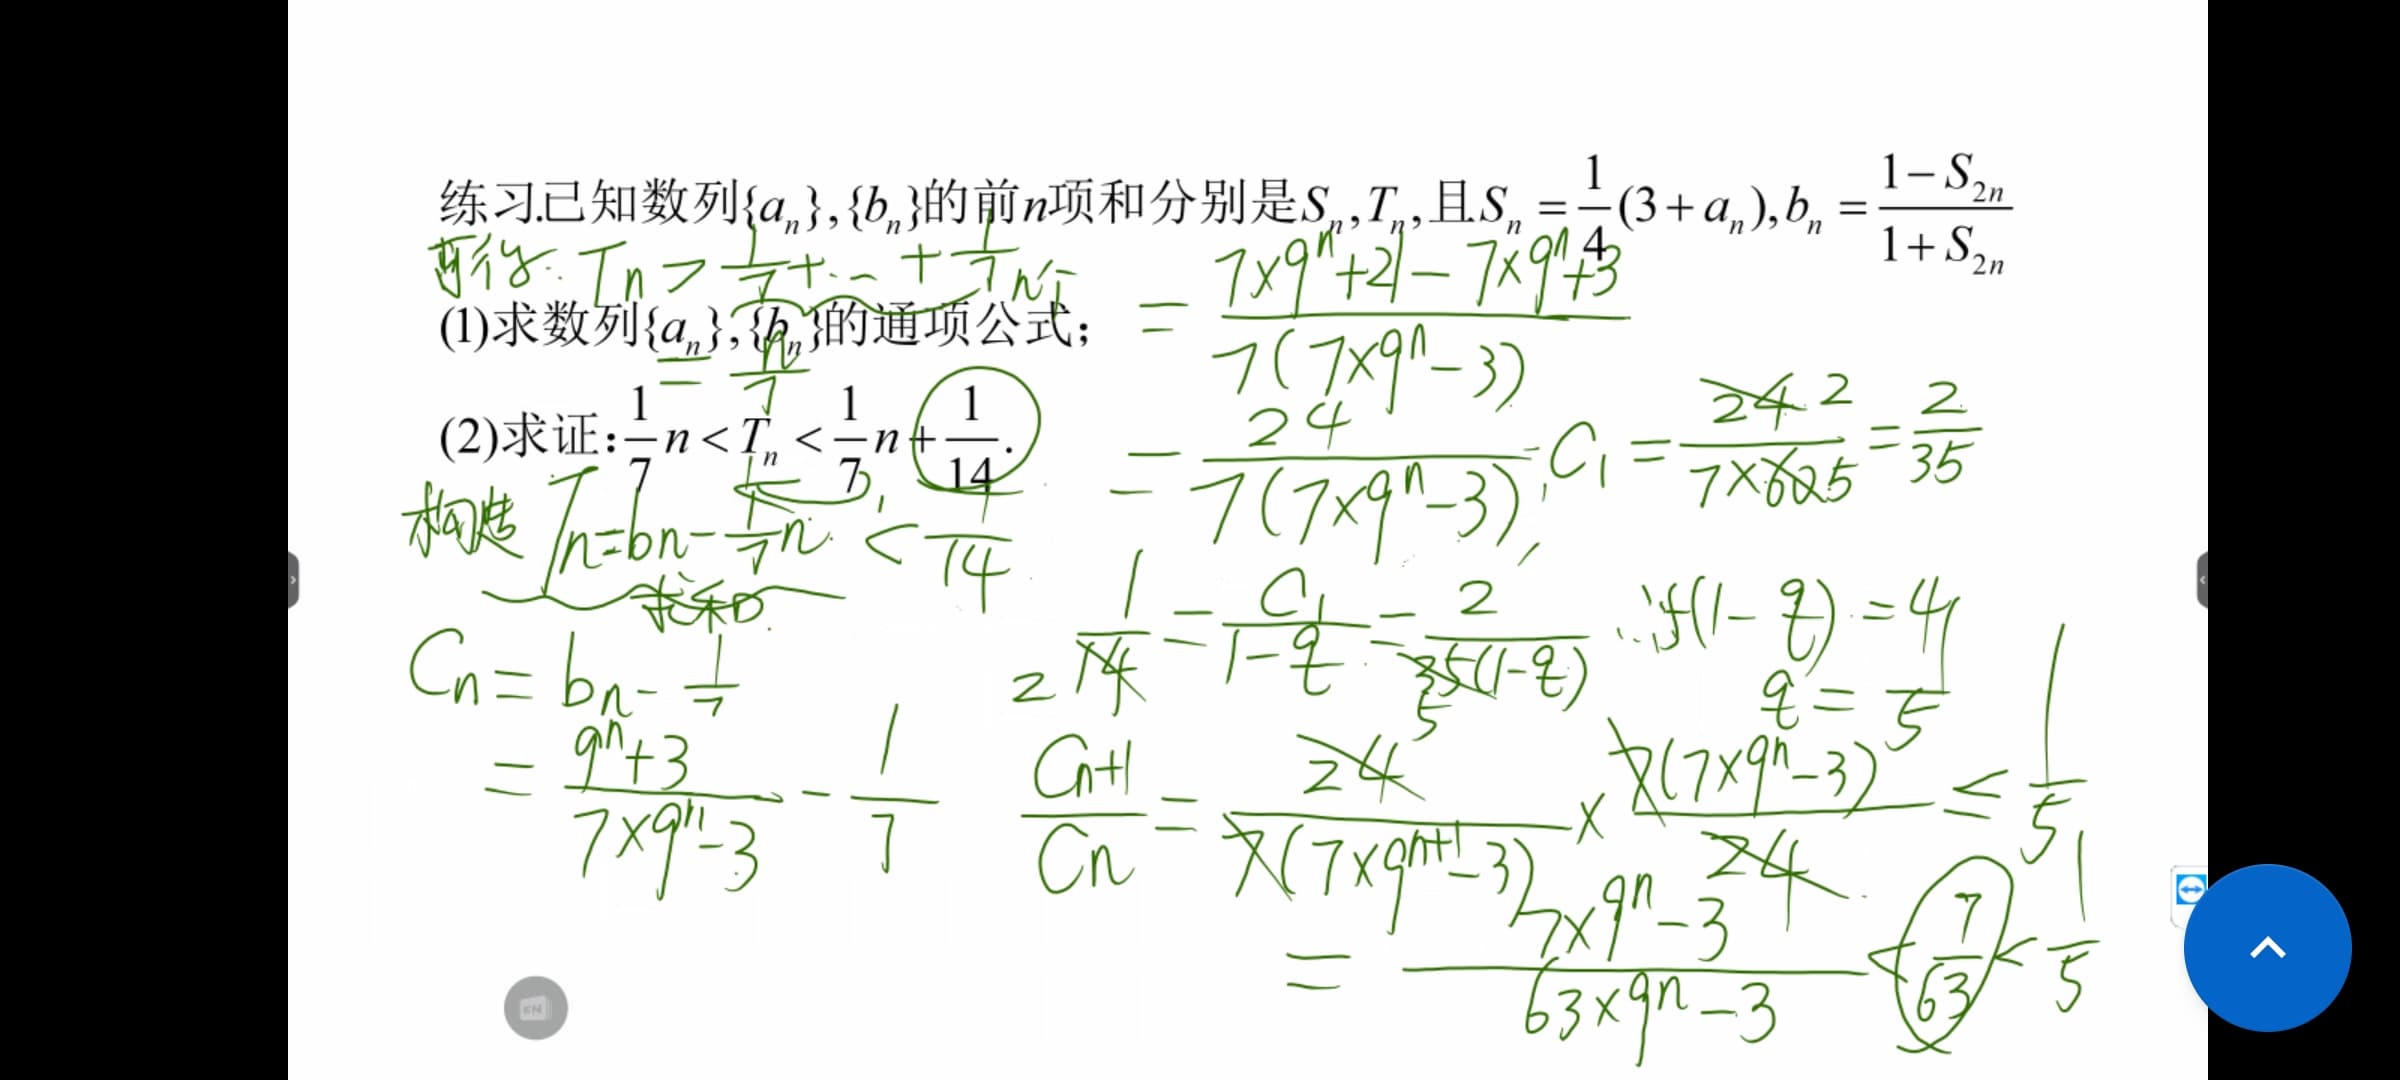 练习.已知数列{aₙ},{bₙ}的前n项和分别是Sₙ,Tₙ,且Sₙ = 1/4(3+aₙ),bₙ = (1−S₂ₙ)/(1+S₂ₙ)
Tₙ > 1/7 + ... + 1/7 n个
(1)求数列{aₙ},{bₙ}的通项公式;
= n/7
(2)求证:1/7 n < Tₙ < 1/7 n + 1/14.
构造 Tn=bn - 1/7 n < 1/14
求和
Cn = bn - 1/7
= (9ⁿ+3)/(7×9ⁿ-3) - 1/7
= (7×9ⁿ+21-7×9ⁿ+3)/(7(7×9ⁿ-3))
= 24/(7(7×9ⁿ-3)), C₁ = 24 2/(7×60 5) = 2/35
1/14 2 = C₁/(1-q) = 2/(35(1-q)) 5 ∴5(1-q) = 4
q = 1/5
Cn+1/Cn = 24/(7(7×9ⁿ⁺¹-3)) × 7(7×9ⁿ-3)/24 ≤ 1/5
= (7×9ⁿ-3)/(63×9ⁿ-3) < 7/63 < 1/5